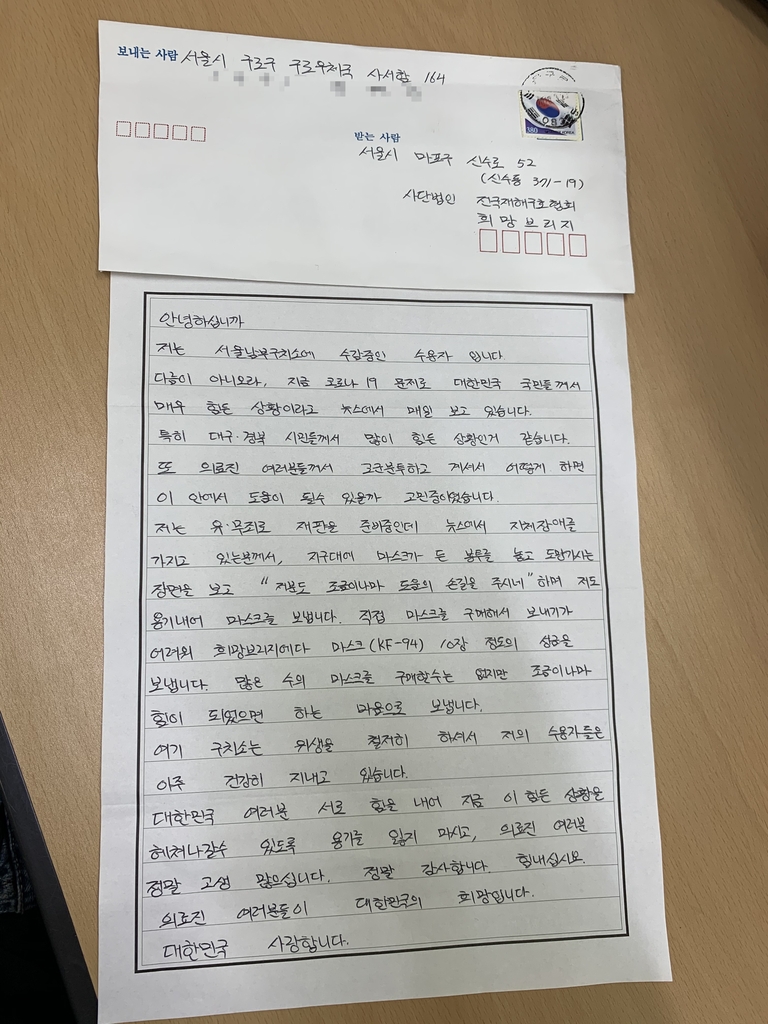 보내는 사람 서울시 구로구 구로우체국 사서함 164
380
받는 사람
서울시 마포구 신수로 52
(신수동 371-19)
사단법인 전국재해구호협회
희망브리지
안녕하십니까
저는 서울남부구치소에 수감중인 수용자 입니다.
다름이 아니오라, 지금 코로나 19 문제로 대한민국 국민들께서
매우 힘든 상황이라고 뉴스에서 매일 보고 있습니다.
특히 대구·경북 시민들께서 많이 힘든 상황인거 같습니다.
또 의료진 여러분들께서 고군분투하고 계셔서 어떻게 하면
이 안에서 도움이 될수 있을까 고민중이었습니다.
저는 유·무죄로 재판을 준비중인데 뉴스에서 지체장애를
가지고 있는분께서, 지구대에 마스크가 든 봉투를 놓고 도망가시는
장면을 보고 "저분도 조금이나마 도움의 손길을 주시네" 하며 저도
용기내어 마스크를 보냅니다. 직접 마스크를 구매해서 보내기가
어려워 희망브리지에다 마스크(KF-94) 10장 정도의 성금을
보냅니다. 많은 수의 마스크를 구매할수는 없지만 조금이나마
힘이 되었으면 하는 마음으로 보냅니다.
여기 구치소는 위생을 철저히 하셔서 저의 수용자들은
아주 건강히 지내고 있습니다.
대한민국 여러분 서로 힘을 내어 지금 이 힘든 상황을
헤쳐나갈수 있도록 용기를 잃지 마시고, 의료진 여러분
정말 고생 많으십니다. 정말 감사합니다. 힘내십시오.
의료진 여러분들이 대한민국의 희망입니다.
대한민국 사랑합니다.